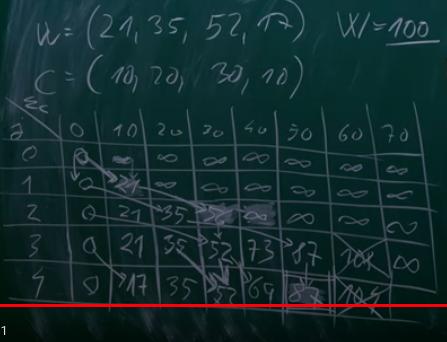 w = (21, 35, 52, 17) W = 100
C = (10, 20, 30, 10)
Σc
j 0 10 20 30 40 50 60 70
0 0 ∞ ∞ ∞ ∞ ∞ ∞ ∞
1 0 21 ∞ ∞ ∞ ∞ ∞ ∞
2 0 21 35 56 ∞ ∞ ∞ ∞
3 0 21 35 52 73 87 108 ∞
4 0 17 35 52 69 87 104
1